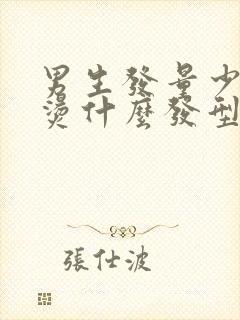 男生發量少
燙什麼發型
張仕波